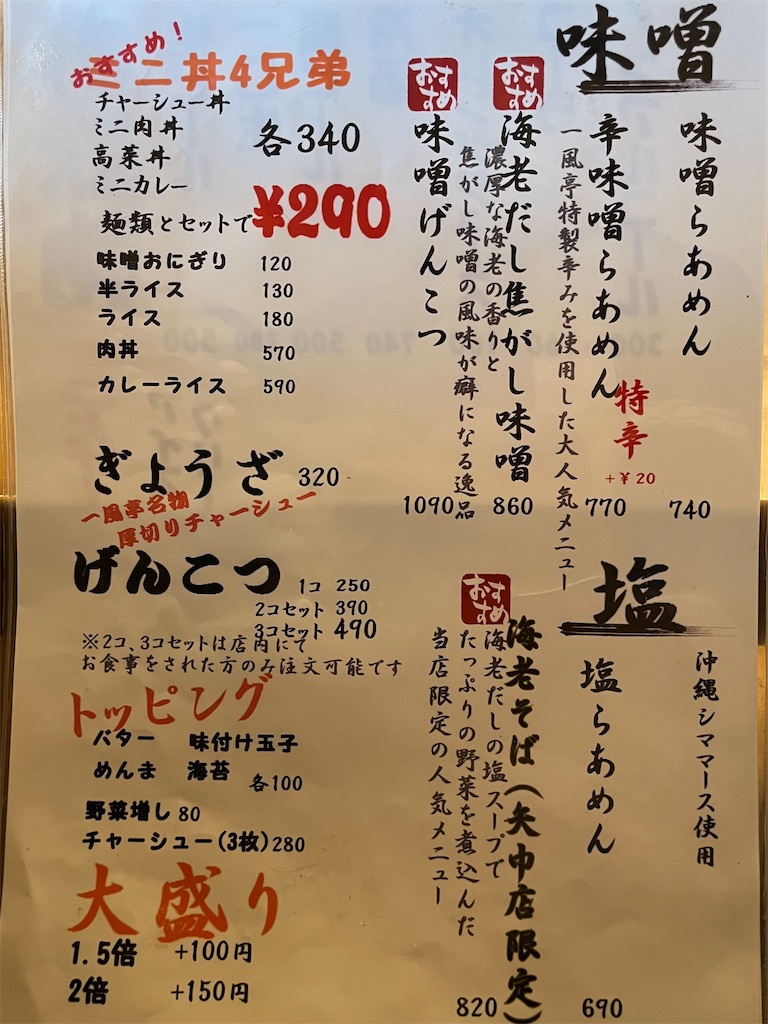 味噌
味噌らあめん
740
辛味噌らあめん
特辛
+¥20
770
一風亭特製辛みを使用した大人気メニュー
おすすめ
海老だし焦がし味噌
濃厚な海老の香りと
焦がし味噌の風味が癖になる逸品
860
おすすめ
味噌げんこつ
1090
塩
沖縄シママース使用
塩らあめん
690
おすすめ
海老そば(矢巾店限定)
海老だしの塩スープで
たっぷりの野菜を煮込んだ
当店限定の人気メニュー
820
おすすめ!
ミニ丼4兄弟
チャーシュー丼
ミニ肉丼
高菜丼
ミニカレー
各340
麺類とセットで¥290
味噌おにぎり 120
半ライス 130
ライス 180
肉丼 570
カレーライス 590
ぎょうざ 320
一風亭名物
厚切りチャーシュー
げんこつ 1コ 250
2コセット 390
3コセット 490
※2コ、3コセットは店内にて
お食事をされた方のみ注文可能です
トッピング
バター 味付け玉子
めんま 海苔 各100
野菜増し 80
チャーシュー(3枚) 280
大盛り
1.5倍 +100円
2倍 +150円